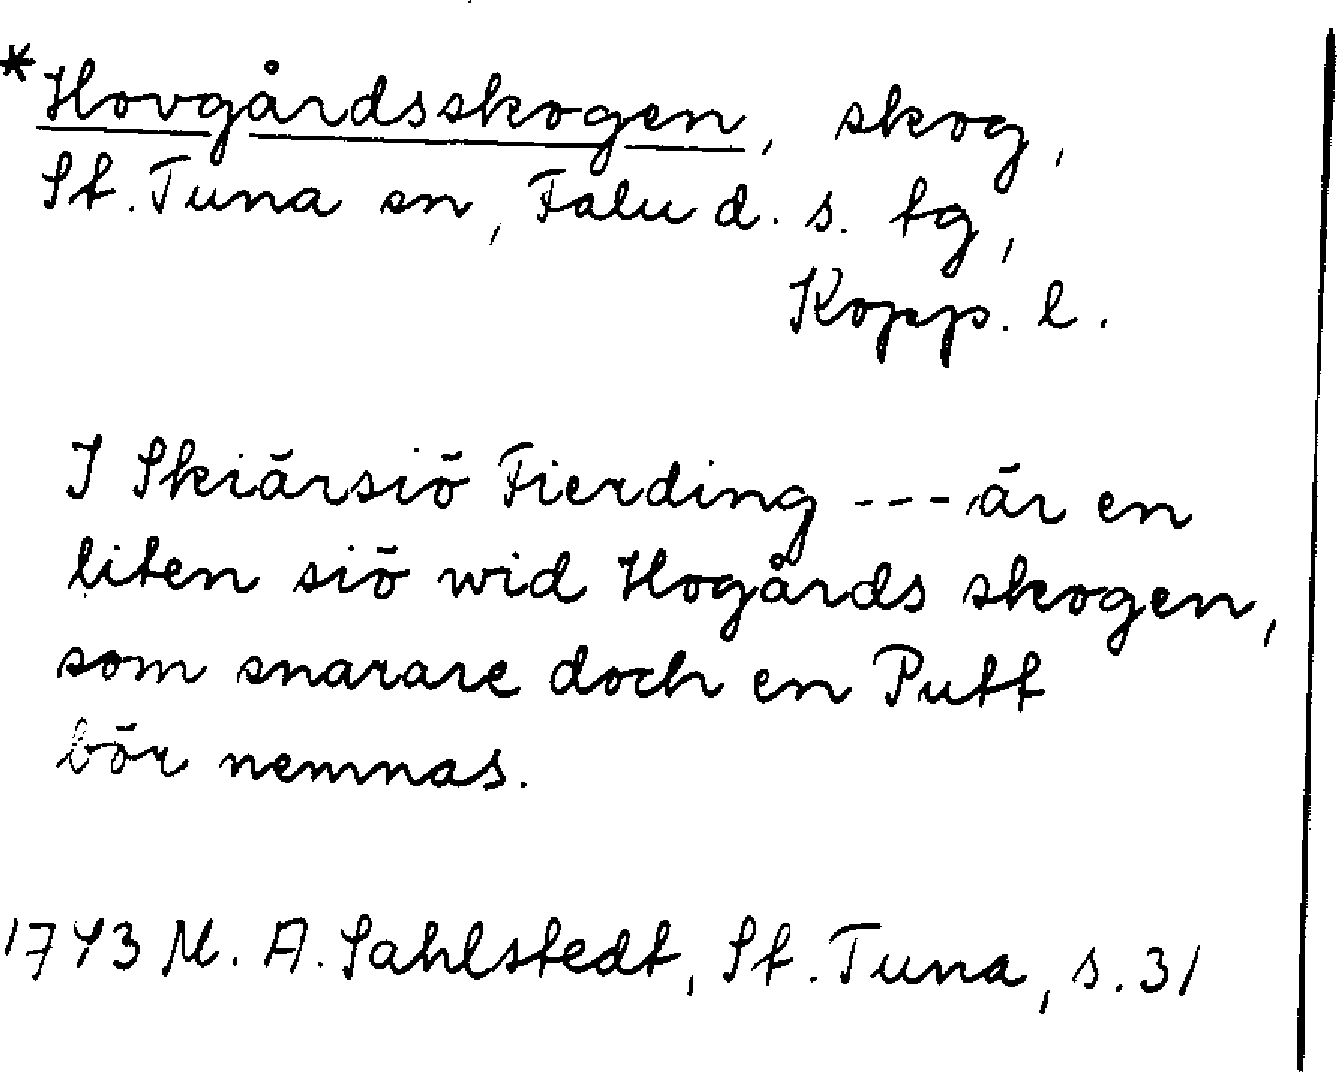 *Hovgårdsskogen, skog,
St. Tuna sn, Falu d. s. tg,
Kopp. l.
I Skiärsiö Fierding --- är en
liten siö wid Hogårds skogen,
som snarare doch en Putt
bör nemnas.
1743 M. A. Sahlstedt, St. Tuna, s. 31